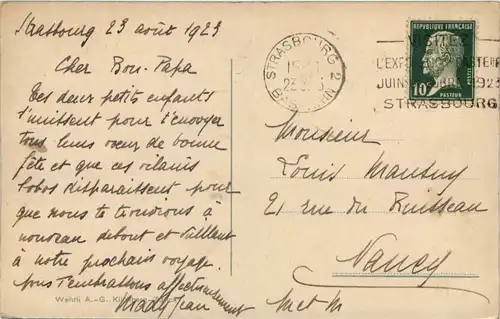 Strasbourg 23 août 1923
Cher Bon-Papa
Tes deux petits enfants
s'unissent pour t'envoyer
tous leurs voeux de bonne
fête et que ces vilains
bobos disparaissent pour
que nous te trouvions à
nouveau debout et vaillant
à notre prochain voyage.
Nous t'embrassons affectueusement
Mady Jean
Wehrli A.-G.
STRASBOURG 2
BAS-RHIN
VISITEZ
L'EXPOSITION PASTEUR
JUIN 1923
STRASBOURG
REPUBLIQUE FRANÇAISE
10c
PASTEUR
Monsieur
Louis
21 rue du Ruisseau
Nancy
Met M